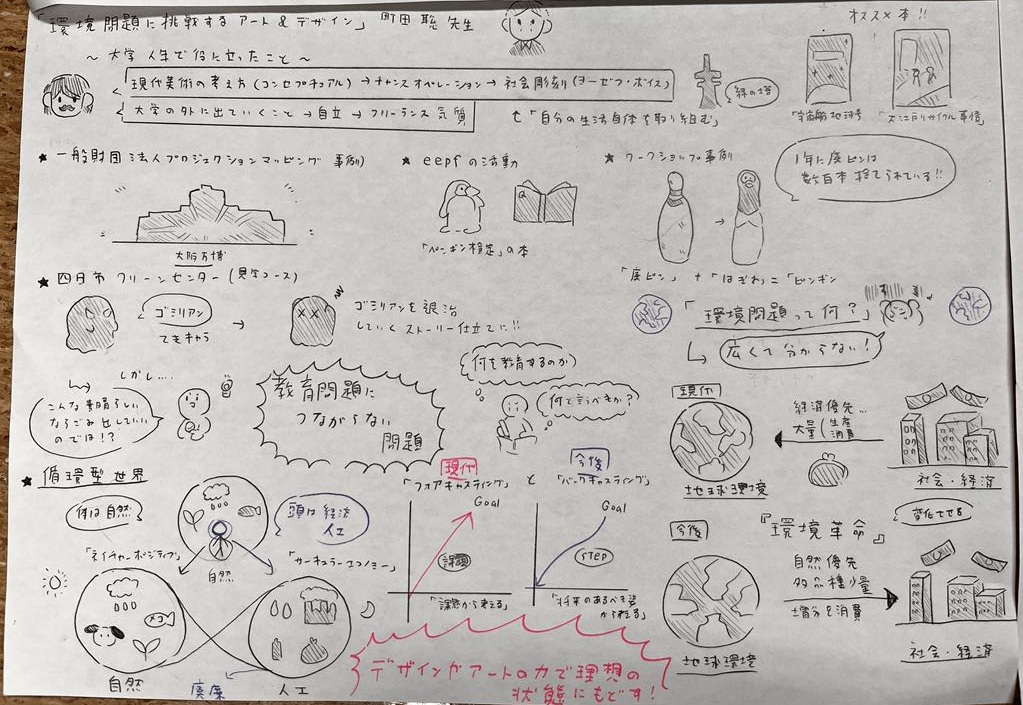 「環境問題に挑戦するアート&デザイン」 町田 聡 先生
オススメ本!!
〜大学人生で役に立ったこと〜
現代美術の考え方(コンセプチュアル)→チャンスオペレーション→社会彫刻(ヨーゼフ・ボイス)
大学の外に出ていくこと→自立→フリーランス気質
「自分の生活自体を取り組む」
「宇宙船地球号」
「大江戸リサイクル事情」
★一般財団法人プロジェクションマッピング 事例)
★eepfの活動
★ワークショップ事例
1年に廃ピンは
数百本捨てられている!!
大阪万博
「ペンギン検定」の本
★四日市クリーンセンター(見学コース)
「廃ピン」+「はぎれ」=「ピンギン
ゴミリアン
てきキャラ
→
ゴミリアンを退治
していくストーリー仕立てに!!
「環境問題って何?」
広くて分からない!
しかし....
こんな素晴らしい
ならごみ出していい
のでは!?
教育問題に
つながらない
問題
何を教育するのか
何て言うべきか?
現代
経済優先...
大量(生産
消費
地球環境
社会・経済
★循環型世界
体は自然
頭は経済
人工
「ネイチャーポジティブ」
自然
「サーキュラーエコノミー」
メコ
自然
廃棄
人工
現代
「フォアキャスティング」
と
今後
「バックキャスティング」
Goal
課題
「課題から考える」
Goal
STEP
「将来のあるべき姿
から考える」
デザインがアートの力で理想の
状態にもどす!
今後
『環境革命』
変化させる
自然優先
多品種少量
増分を消費
地球環境
社会・経済